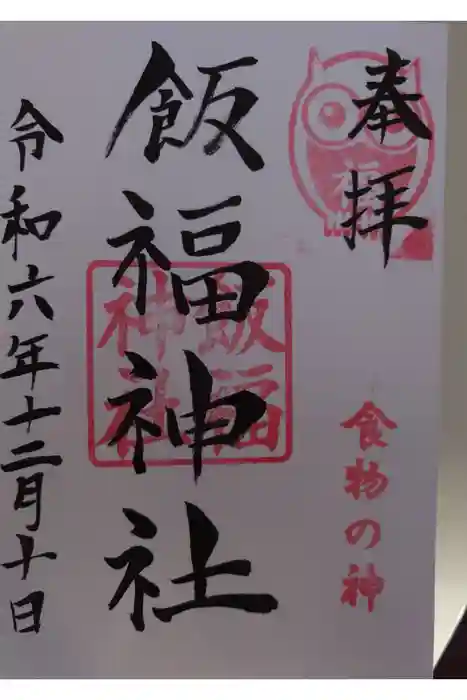 奉拝
福
食物の神
飯福神社
飯福
神社
令和六年十二月十日